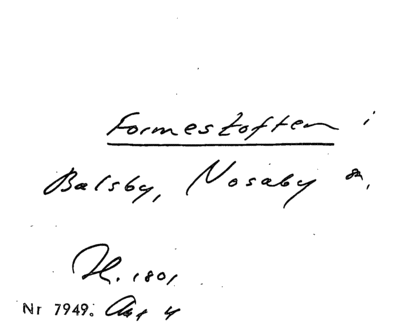 Formestoften i
Balsby, Nosaby sn,
H. 1801
Nr 7949. Akt 4